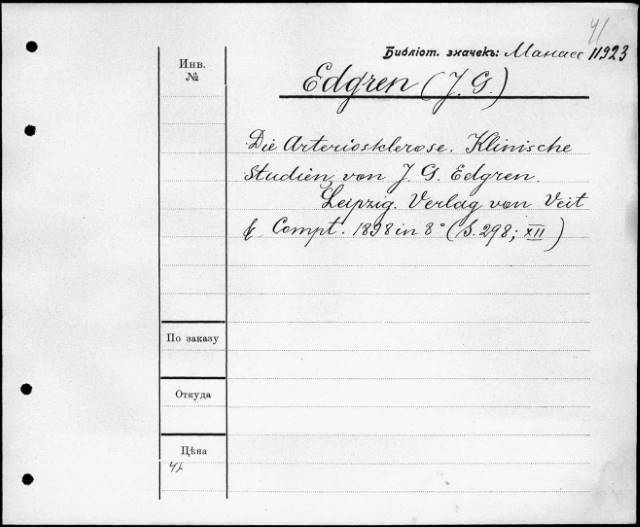 41
Библіот. значекъ: Манасс 11923
Инв.
№
Edgren (J. G.)
Die Arteriosklerose. Klinische
Studien von J. G. Edgren.
Leipzig. Verlag von Veit
& Compt. 1898 in 8° (S. 298; XII)
По заказу
Откуда
Цѣна